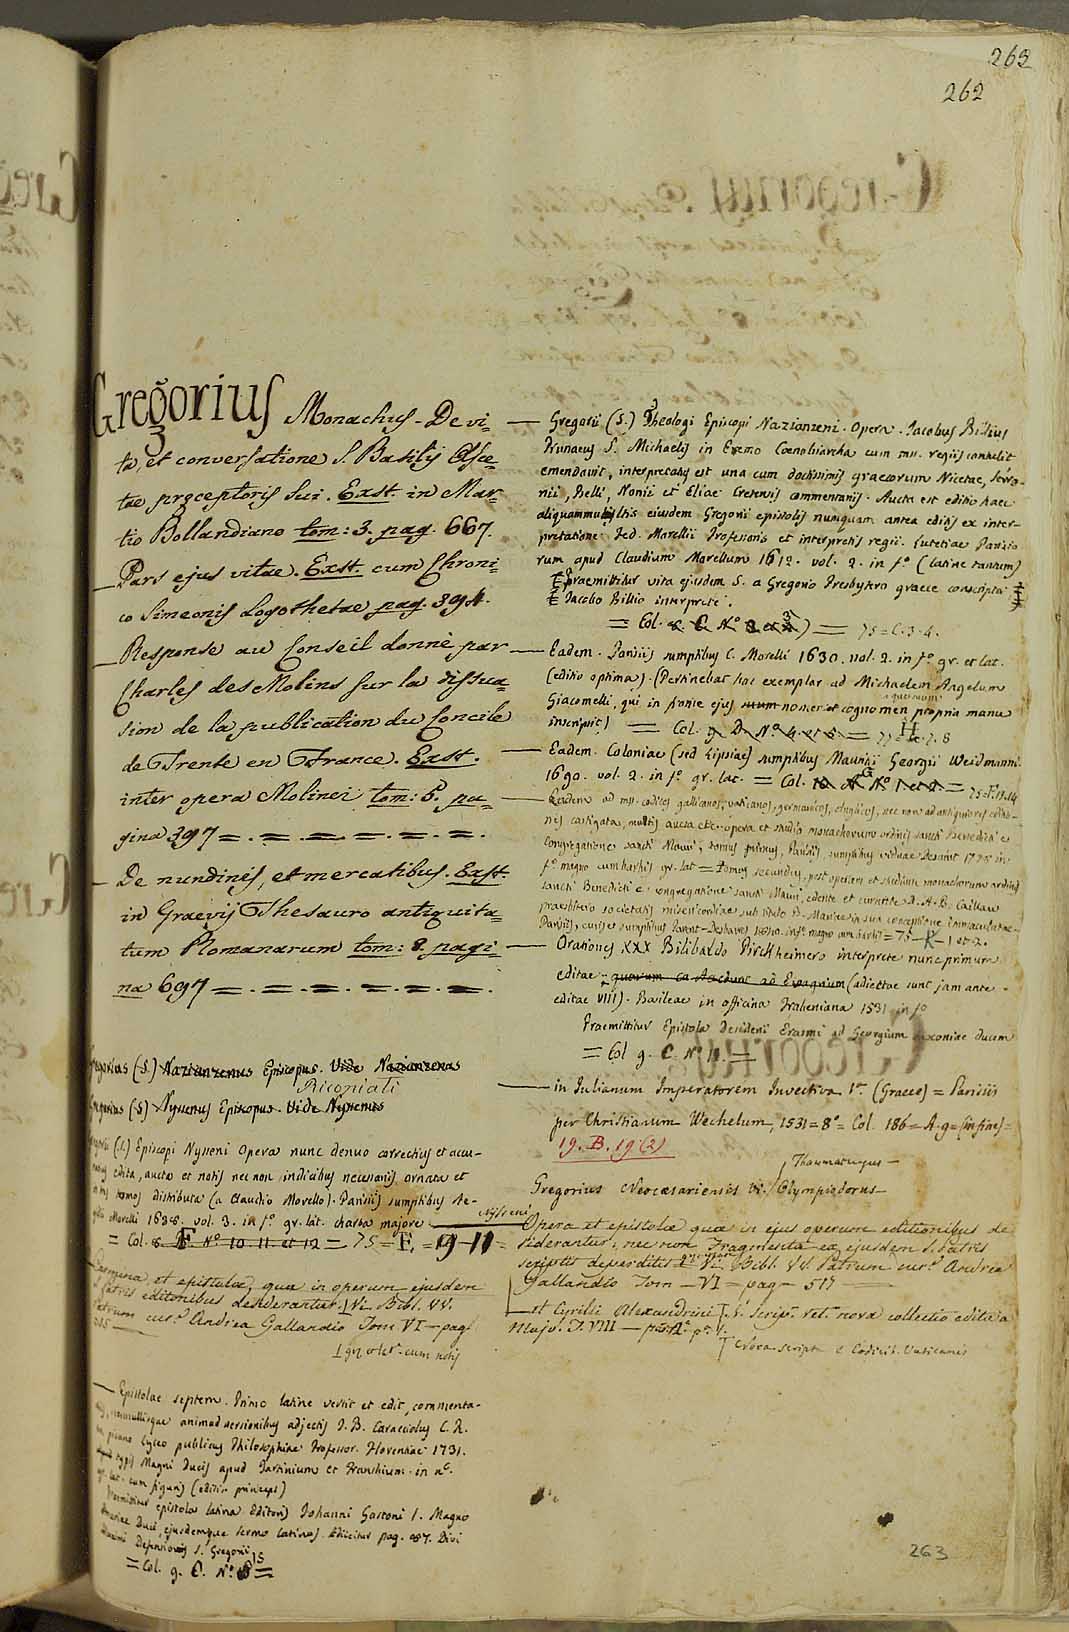 263
262
Gregorius Monachus - De vi-
ta, et conversatione S. Basilij Asce-
tae prçceptoris sui. Exst. in Mar-
tio Bollandiano tom: 3. pag. 667.
Pars ejus vitae. Exst. cum Chroni-
co Simeonis Logothetae pag. 394.
Response au Conseil donnè par
Charles des Molins sur la dissua-
sion de la publication du Concile
de Trente en France. Exst.
inter opera Molinei tom: 5. pa-
gina 397 = . = . = . = . = . = .
De nundinis, et mercatibus. Exst.
in Graevij Thesauro antiquita-
tum Romanarum tom: 8. pagi-
na 697 = . = . = . = . = .
Gregorius (S.) Nazianzenus Episcopus. Vide Nazianzenus
Ricopiati
Gregorius (S) Nyssenus Episcopus. Vide Nyssenus
(S.) Episcopi Nysseni Opera nunc denuo correctius et accu-
edita, aucta et notis nec non indicibus necessariis ornata et
tomos distributa (a Claudio Morello). Parisiis sumptibus Ae-
Morelli 1638. vol. 3. in fo. gr. lat. charta majore Nysseni
= Col. 8. F. No 10. 11. et 12 = 75 = F. = 9 - 11 =
Carmina, et epistolae, quae in operum ejusdem
S. Patris editionibus desiderantur. V. Bibl. VV.
Patrum cur. Andrea Gallandio Tom VI - pag
gr. et lat. cum notis
Epistolae septem. Primo latine vertit et edit, commenta-
nonnullisque animadversionibus adjectis J. B. Caracciolus C. R.
in pisano Lyceo publicus Philosophiae Professor. Florentiae 1731.
typis Magni Ducis apud Tartinium et Franchium. in 4o.
gr. lat. cum figuris (editio princeps)
Praemittitur epistola latina Editoris Johanni Gastoni I. Magno
Etruriae Duci, ejusdemque sermo latinus. Adiicitur pag. Divi
Defensionis S. Gregorii
= Col. 9. C. No. 15 =
Gregorii (S.) Theologi Episcopi Nazianzeni. Opera. Jacobus Billius
Prunaeus S. Michaelis in Eremo Coenobiarcha cum mss. regiis contulit
emendavit, interpretatus est una cum doctissimis graecorum Nicetae, Sero-
nii, Pselli, Nonii et Eliae Cretensis commentariis. Aucta est editio haec
aliquammultis eiusdem Gregorii epistolis nunquam antea editis ex inter-
pretatione Fed. Morellii Professoris et interpretis regii. Lutetiae Parisio-
rum apud Claudium Morellum 1612. vol. 2. in fo. (latine tantum)
Praemittitur vita ejusdem S. a Gregorio Presbytero graece conscripta
Jacobo Billio interprete.
= Col. 8. C. No 3 et 4) = 75 = C. 3. 4.
Eadem. Parisiis sumptibus C. Morelli 1630. vol. 2. in fo. gr. et lat.
(editio optima). (Pertinebat hac exemplar ad Michaelem Angelum
Giacomelli, qui in fronte ejus suum nomen et cognomen propria manu
inscripsit) = Col. 9. D. No 4. et 5. = 75 = H. 7. 8
Eadem. Coloniae (sed Lipsiae) sumptibus Mauritii Georgii Weidmanni
1690. vol. 2. in fo. gr. lat. = Col. 10 A No 1 et 2 = 75. F. 13. 14
Eadem ad mss. codices gallicanos, vaticanos, germanicos, anglicos, nec non ad antiquiores editio-
nes castigata, multis aucta etc. opera et studio monachorum ordinis sancti Benedicti e
congregatione sancti Mauri, tomus primus, Parisiis, sumptibus viduae Desaint 1778 in
fo. magno cum hartis gr. lat = tomus secundus, post operam et studium monachorum ordinis
sancti Benedicti e congregatione sancti Mauri, edente et curante D. A. B. Caillau
presbitero societatis misericordiae sub titulo B. Mariae in sua conceptione Immaculatae -
Parisiis, curis et sumptibus Parent-Desbarres 1840. in fo. magno cum hartis = 75 - K - 1 et 2.
Orationes XXX Bilibaldo Pirckheimero interprete nunc primum
editae - quarum ea Accedunt ad Evagrium (adjectae sunt jam ante
editae VIII). Basileae in officina Frobeniana 1531 in fo
Praemittitur Epistola Desiderii Erasmi ad Georgium Saxoniae Ducem
= Col 9. C. No. 11. =
in Julianum Imperatorem Invectiva 1a. (Graece) = Parisiis
per Christianum Wechelum, 1531 = 8o = Col. 186 = A. 9 = (in fine) =
19. B. 19 (2)
Thaumaturgus -
Gregorius Neocaesariensis Vi. Olympiodorus -
Opera et epistolae quae in ejus operum editionibus de
siderantur; nec non Fragmenta ex ejusdem S. Patris
scriptis deperditis V. Bibl. VV. Patrum cur. Andrea
Gallandio Tom - VI - pag - 517
et Cyrilli Alexandrini V. Scrip. Vet. nova collectio edita a
Majo. T. VIII -
Nova scripta e Codicib. Vaticanis
263